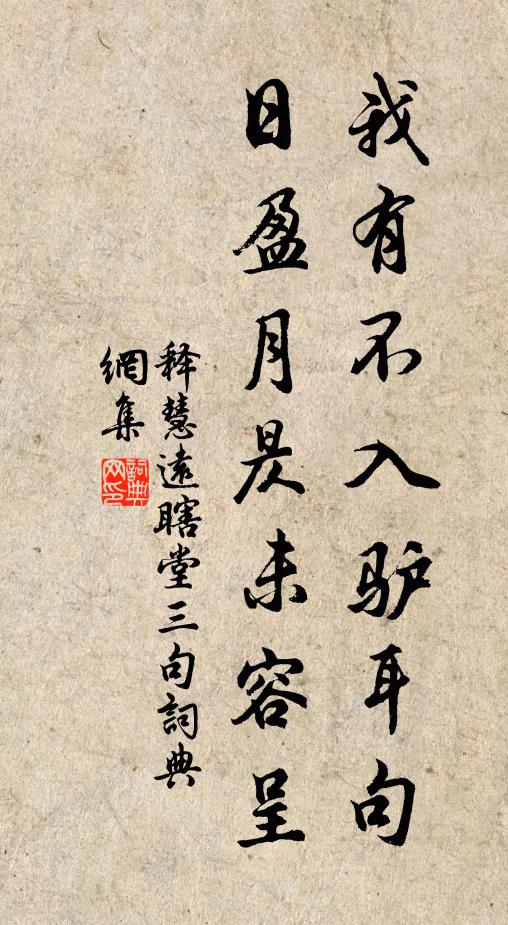 我有不入驴耳句
日盈月昃未容呈
释慧遠瞎堂三句詞典
網集
詞典网印